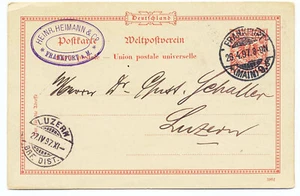 Deutschland
HEINR. HEIMANN & Co.
FRANKFURT a. M.
Postkarte Weltpostverein
Union postale universelle
FRANKFURT
26.4.97.
(MAIN)
Herrn Dr. Gust. Schaller
Luzern
LUZERN
27.IV.97.XI-
BRF. DIST.